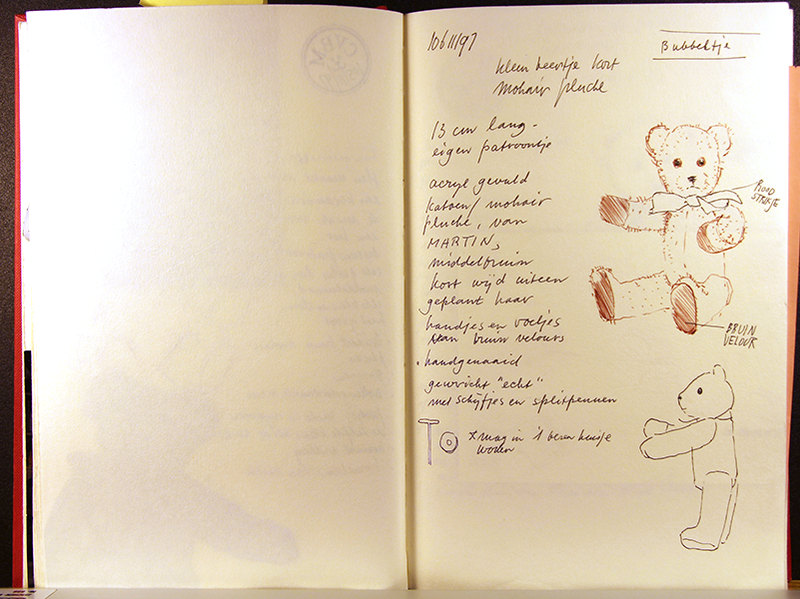 10611197
Bubbeltje
klein beertje kort
mohair pluche
13 cm lang -
eigen patroontje
acryl gevuld
katoen/mohair
pluche, van
MARTIN,
middelbruin
kort wijd uiteen
geplant haar
handjes en voetjes
van bruin velours
handgenaaid
gewricht "echt"
met schijfjes en splitpennen
x mag in 't beren huisje
wonen
ROOD
STRIKJE
BRUIN
VELOUR